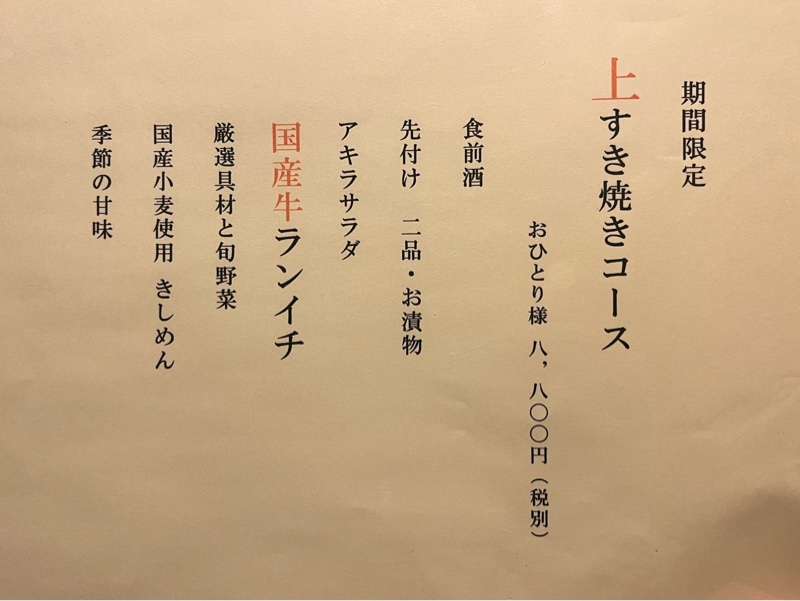 期間限定
上すき焼きコース
おひとり様 八,八〇〇円(税別)
食前酒
先付け 二品・お漬物
アキラサラダ
国産牛ランイチ
厳選具材と旬野菜
国産小麦使用 きしめん
季節の甘味